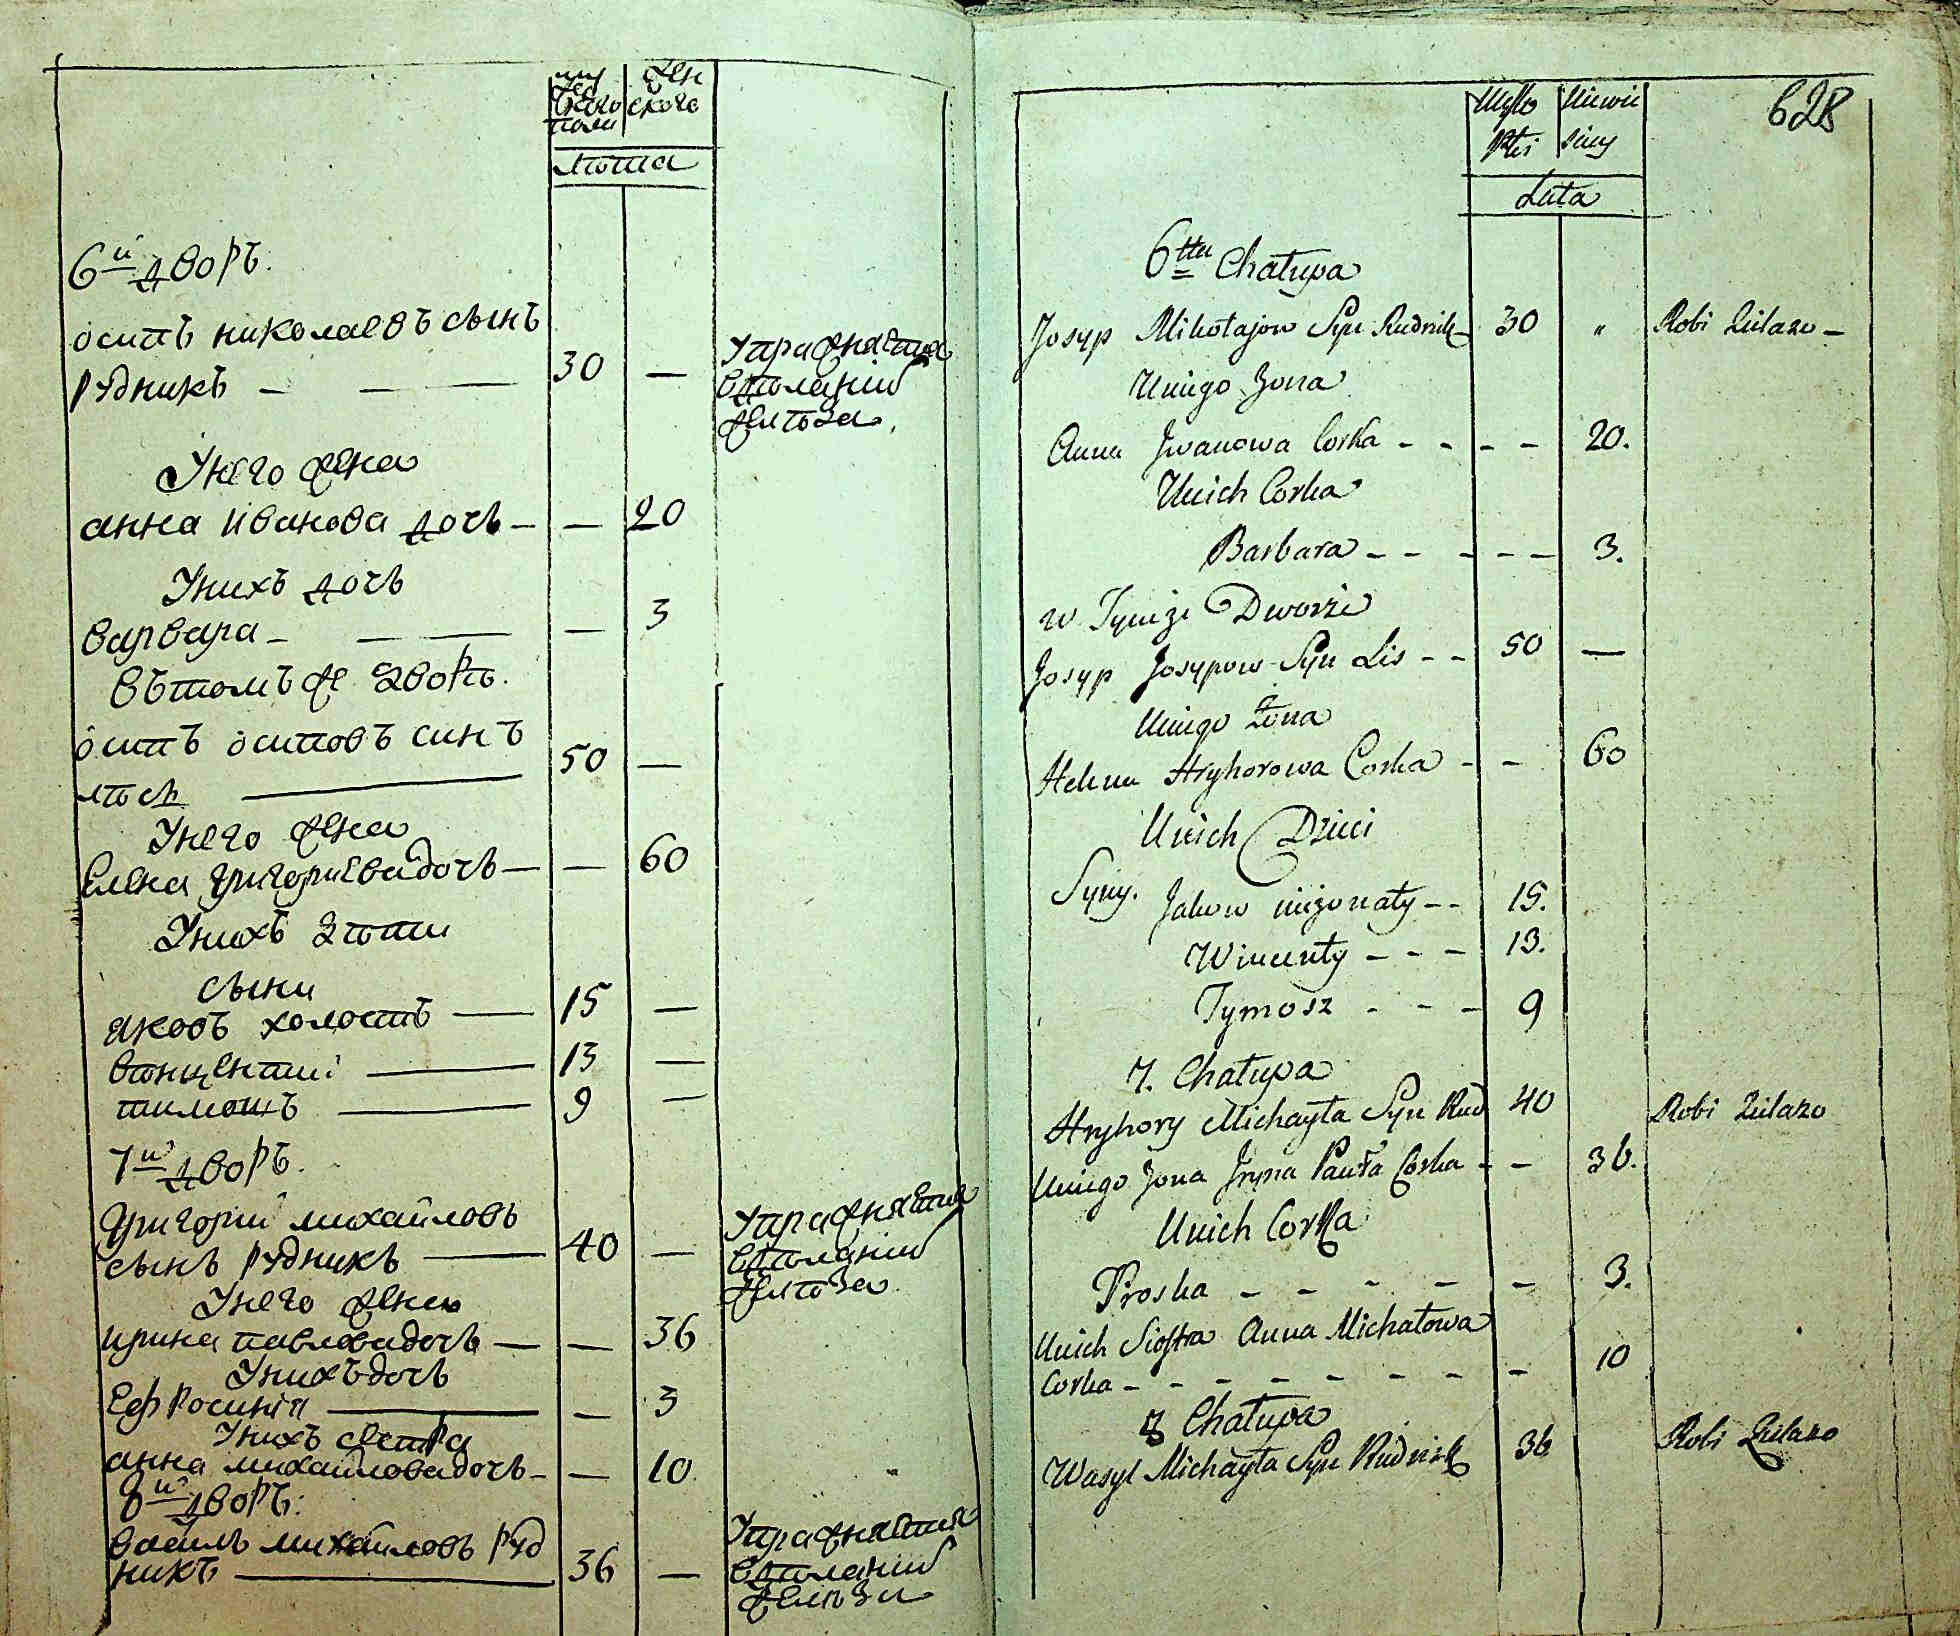 муж
ескаго
поли
жен
скаго
лѣта
6й дворъ.
осипъ николаевъ сынъ
рудникъ — — — 30 —
Упражняется
вдѣланіи
желѣза.
Унего жена
анна иванова дочь — — 20
Унихъ дочь
варвара — — — — 3
вътомъ же дворѣ.
осипъ осиповъ синъ
лѣсъ — 50 —
Унего жена
елена григориева дочь — — 60
Унихъ дѣти
сыни
яковъ холостъ — 15 —
вѣнцентий — 13 —
тимошъ — 9 —
7й дворъ.
Григорий михайловъ
сынъ рудникъ — 40 —
Упражняется
вдѣланіи
желѣза
Унего жена
ирина павлова дочь — — 36
Унихъ дочь
Ефросинія — — 3
Унихъ сестра
анна михайловадочь — — 10.
8й дворъ:
василь михайловъ руд
никъ — 36 —
Упражняется
вдѣланіи
желѣза
628
Męsko
Płci
Niewie
sciey
Lata
6tta Chałupa
Josyp Mikołajow Syn Rudnik 30 „ Robi Zielazo —
Uniego Zona
Anna Jwanowa Corka - - - - 20.
Unich Corka
Barbara - - - - - 3.
w Tymże Dworze
Josyp Josypow Syn Lis - - 50 —
Uniego Żona
Helena Hryhorowa Corka - - 60
Unich Dzieci
Syny. Jakow nieżonaty - - 15.
Wincenty - - - 13.
Tymosz - - - 9
7. Chałupa
Hryhory Michayła Syn Rud 40 Robi Zielazo
Uniego Zona Jryna Pauła Corka - - 36.
Unich Corka
Proska - - - - - 3.
Unich Siostra Anna Michałowa
Corka - - - - - - - - 10
8 Chałupa
Wasyl Michayła Syn Rudnik 36 Robi Zielazo